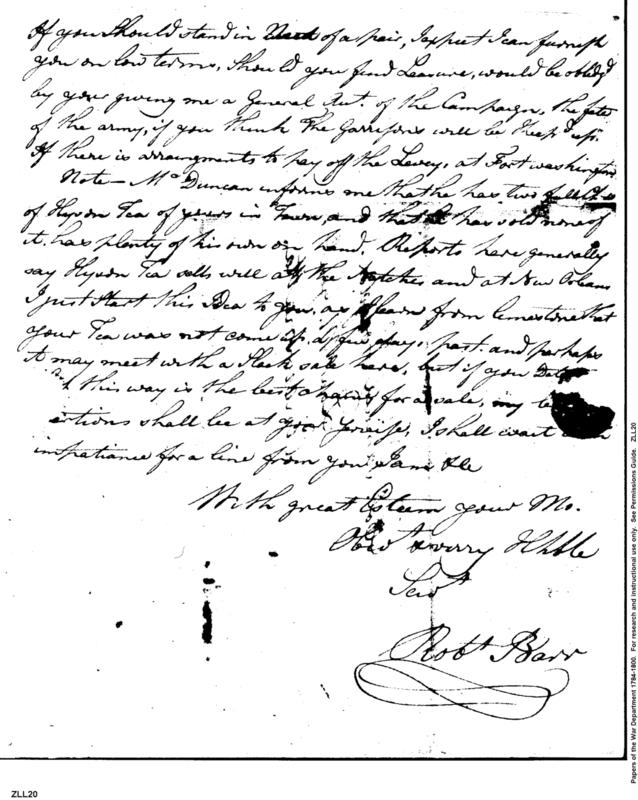 If you Should stand in Need of a pair, I expect I can furnish
you on low terms, Should you find Leasure, would be oblidg'd
by your giving me a General Act. of the Campaign, the fate
of the army, if you think the Garrisons will be Keep'd up.
If there is arrangments to pay off the Levey, at Fort washington
Note - Mr Duncan informs me that he has two
of Hyson Tea of yours in Town, and that he has sold none of
it, has plenty of his own on hand. Reports here generally
say Hyson Tea sells well at the Natches and at New Orleans
I just Start this Idea to you, as I learn from limestone that
your Tea was not come up, a few days past. and perhaps
it may meet with a Slack sale here, but if you
this way is the best chance for a sale, my
ertions shall be at your Service, I shall wait
impatiance for a line from you I am Sir
With great Esteem your Mo.
Obedt & verry Hbble
Servt
Robt Barr
ZLL20
Papers of the War Department 1784-1800. For research and instructional use only. See Permissions Guide. ZLL20